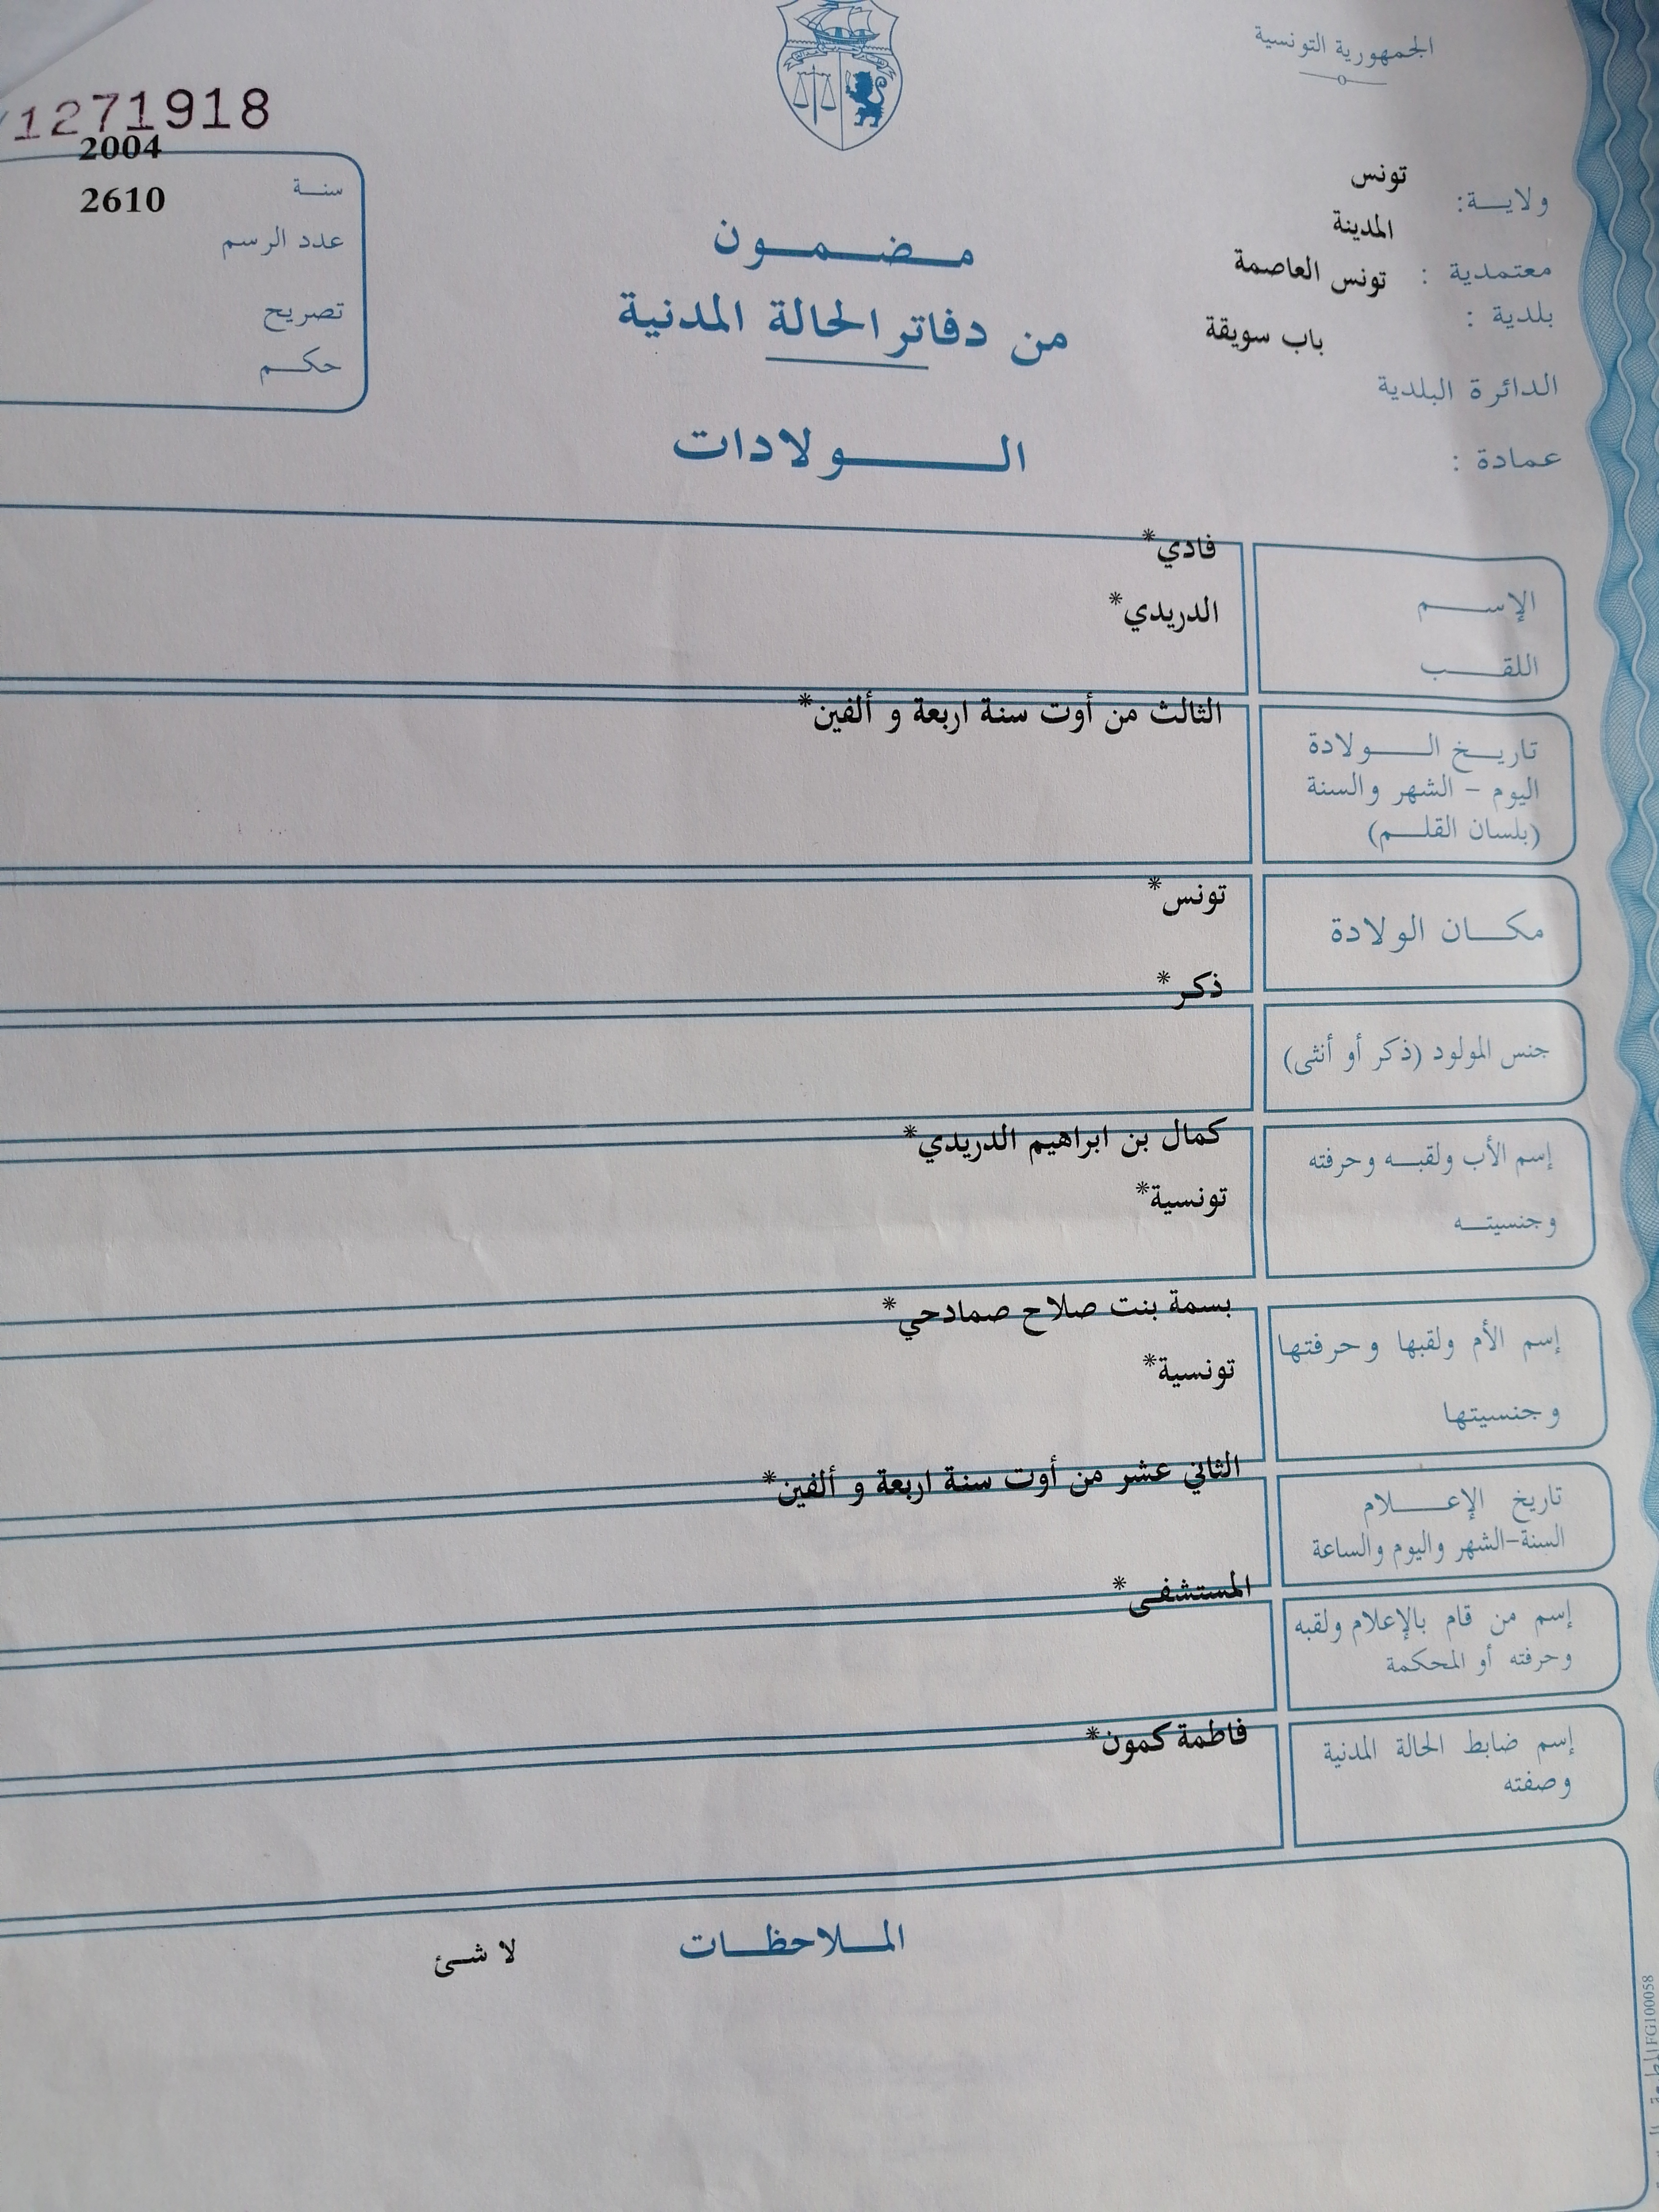 الجمهورية التونسية
1271918
2004
سنة
2610
عدد الرسم
تصريح
حكم
ولاية: تونس
المدينة
معتمدية : تونس العاصمة
بلدية :
باب سويقة
الدائرة البلدية
عمادة :
مضمون
من دفاتر الحالة المدنية
الولادات
فادي*
الإسم
الدريدي*
اللقب
الثالث من أوت سنة اربعة و ألفين*
تاريخ الولادة
اليوم - الشهر والسنة
(بلسان القلم)
تونس*
مكان الولادة
ذكر*
جنس المولود (ذكر أو أنثى)
كمال بن ابراهيم الدريدي*
إسم الأب ولقبه وحرفته
تونسية*
وجنسيته
بسمة بنت صلاح صمادحي*
إسم الأم ولقبها وحرفتها
تونسية*
وجنسيتها
الثاني عشر من أوت سنة اربعة و ألفين*
تاريخ الإعلام
السنة-الشهر واليوم والساعة
المستشفى*
إسم من قام بالإعلام ولقبه
وحرفته أو المحكمة
فاطمة كمون*
إسم ضابط الحالة المدنية
وصفته
الملاحظات
لا شئ
FG100058